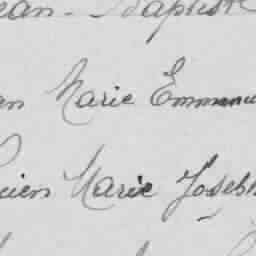 ean-Baptiste
en Marie Emmanu
cien Marie Joseph